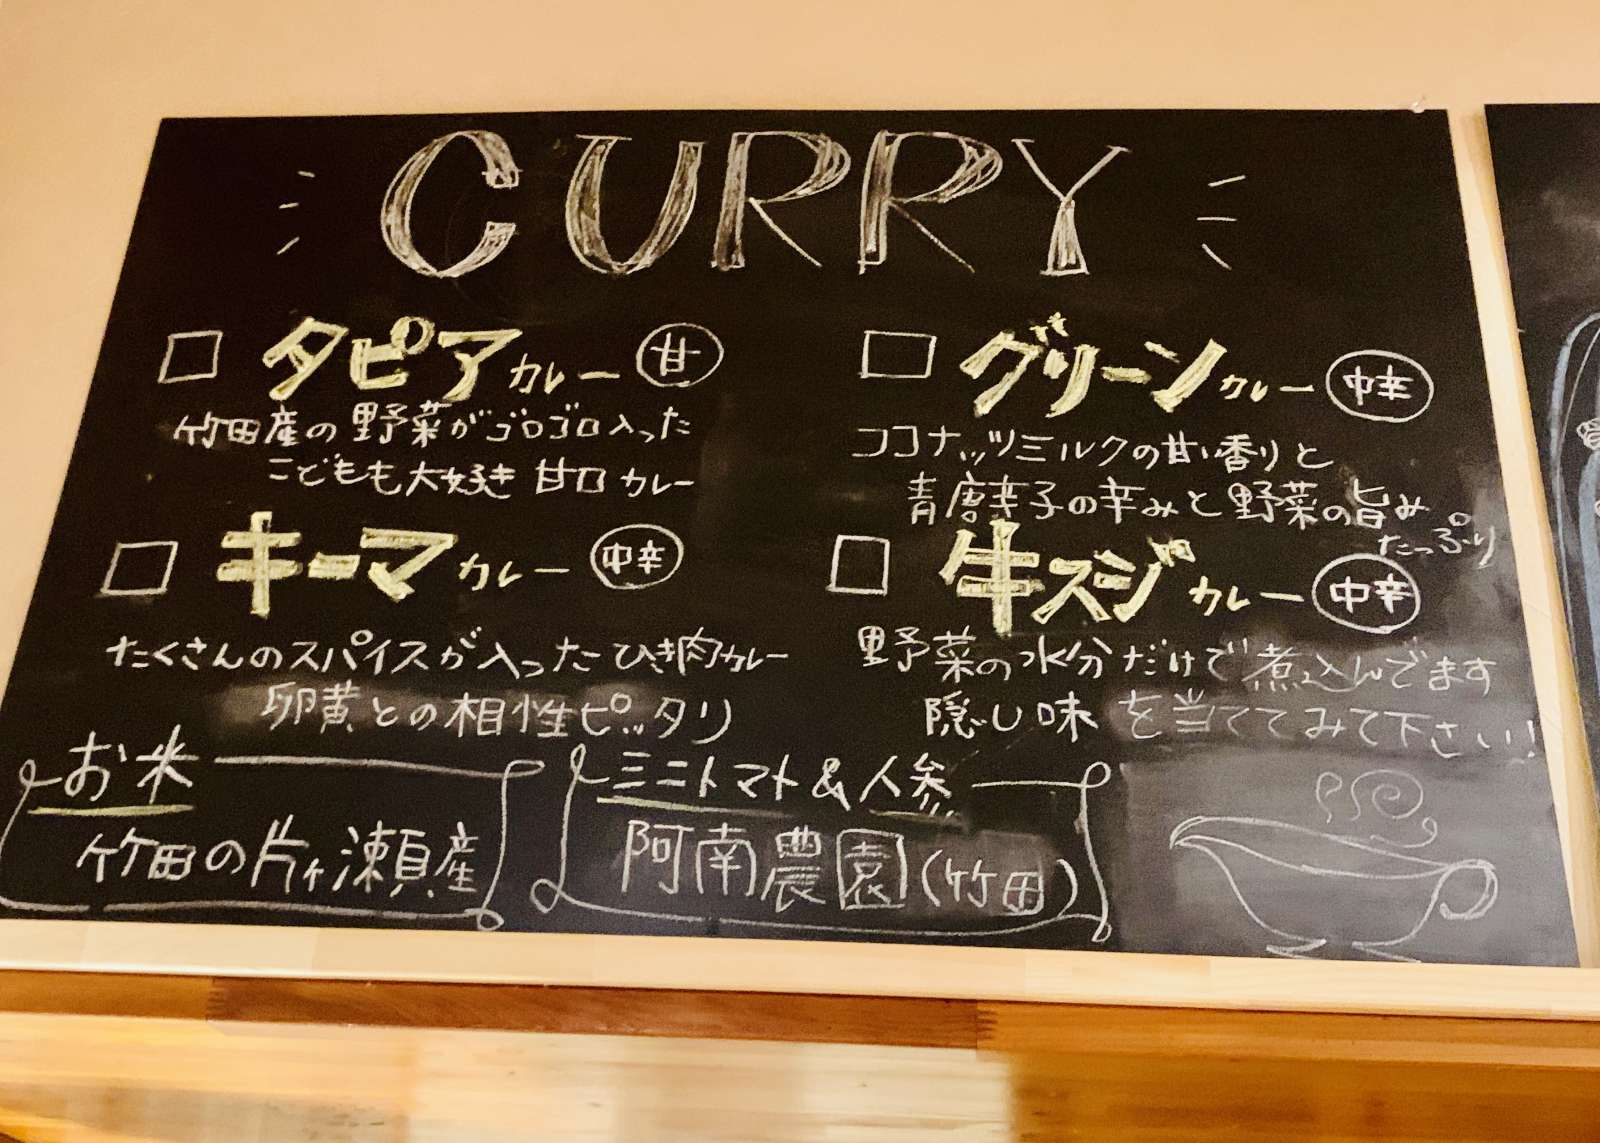 CURRY
□ タピアカレー 甘
竹田産の野菜がゴロゴロ入った
こどもも大好き 甘口カレー
□ グリーンカレー 中辛
ココナッツミルクの甘い香りと
青唐辛子の辛みと野菜の旨み
たっぷり
□ キーマカレー 中辛
たくさんのスパイスが入ったひき肉カレー
卵黄との相性ピッタリ
□ 牛スジカレー 中辛
野菜の水分だけで煮込んでます
隠し味を当ててみて下さい!
お米
竹田の片ヶ瀬産
ミニトマト&人参
阿南農園(竹田)